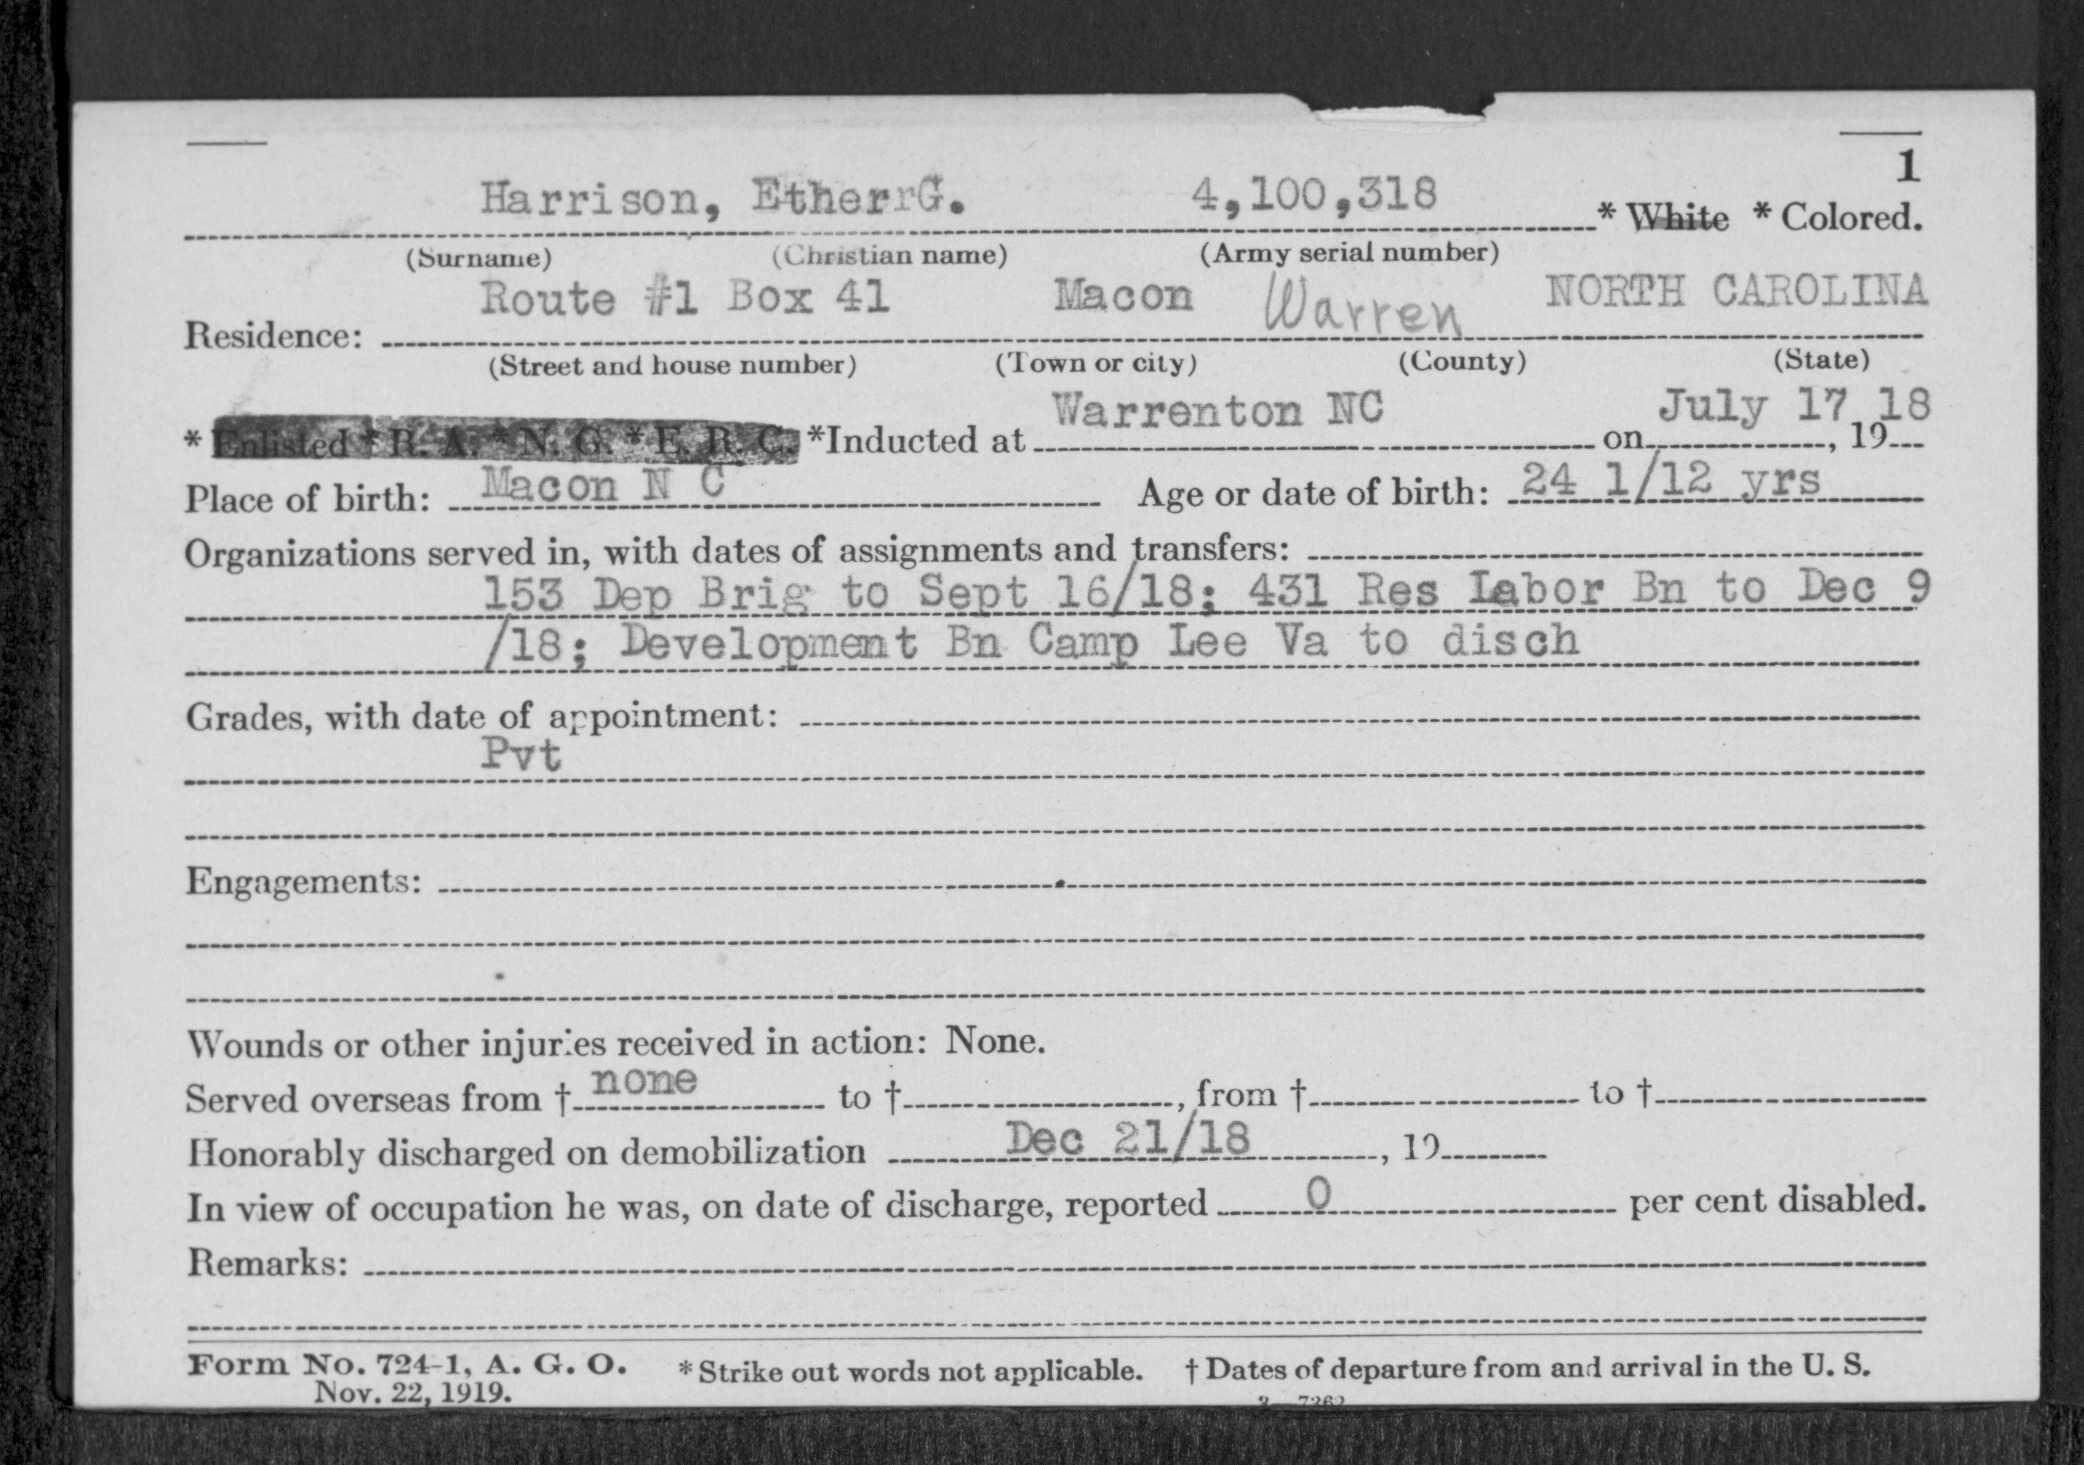 1
Harrison, EtherrG. 4,100,318 * White * Colored.
(Surname) (Christian name) (Army serial number)
Route #1 Box 41 Macon Warren NORTH CAROLINA
Residence:
(Street and house number) (Town or city) (County) (State)
Warrenton NC July 17 18
* Enlisted * R. A. * N. G. * E. R. C. *Inducted at on , 19
Place of birth: Macon N C Age or date of birth: 24 1/12 yrs
Organizations served in, with dates of assignments and transfers:
153 Dep Brig to Sept 16/18; 431 Res Labor Bn to Dec 9
/18; Development Bn Camp Lee Va to disch
Grades, with date of appointment:
Pvt
Engagements:
Wounds or other injuries received in action: None.
Served overseas from † none to † , from † to †
Honorably discharged on demobilization Dec 21/18 , 19
In view of occupation he was, on date of discharge, reported 0 per cent disabled.
Remarks:
Form No. 724-1, A. G. O. * Strike out words not applicable. † Dates of departure from and arrival in the U. S.
Nov. 22, 1919. 3—7362